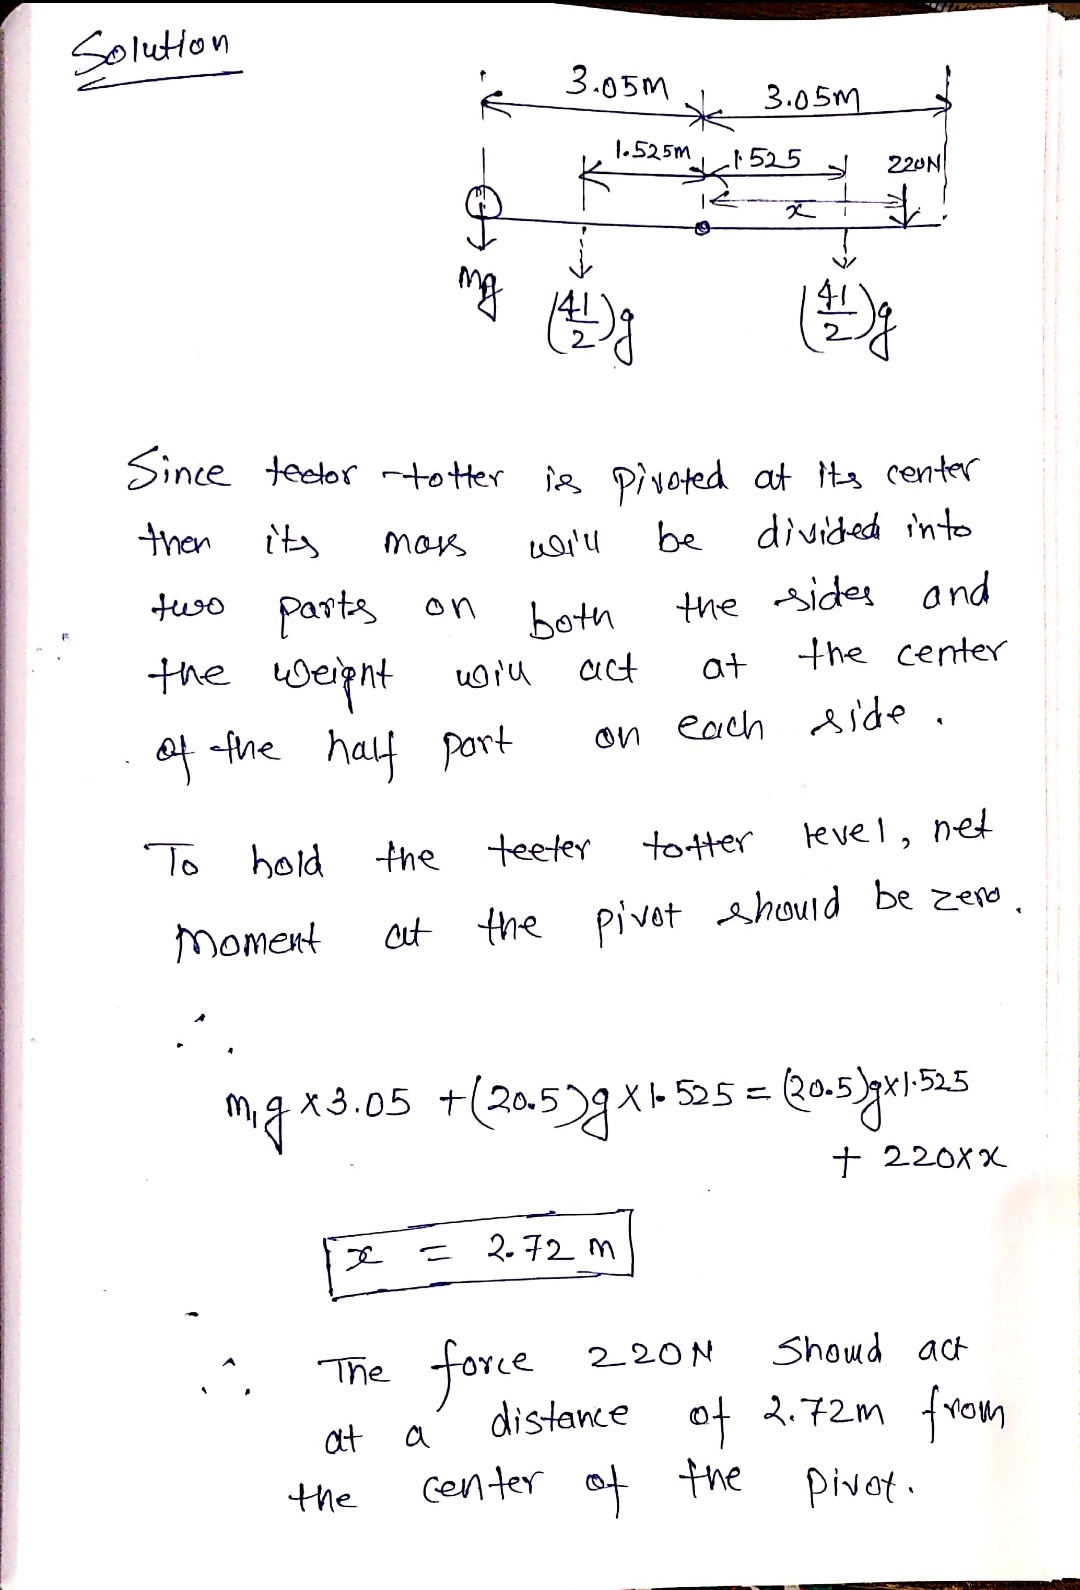 Solution
3.05m 3.05m
1.525m 1.525 220N
x
m
mg (41/2)g (41/2)g
Since teetor-totter is pivoted at its center
then its mass will be divided into
two parts on both the sides and
the weight will act at the center
of the half part on each side.
To hold the teeter totter level, net
moment at the pivot should be zero.
∴
m₁g x 3.05 + (20.5)g x 1.525 = (20.5)g x 1.525
+ 220 x x
x = 2.72 m
∴ The force 220N Shoud act
at a distance of 2.72m from
the center of the pivot.